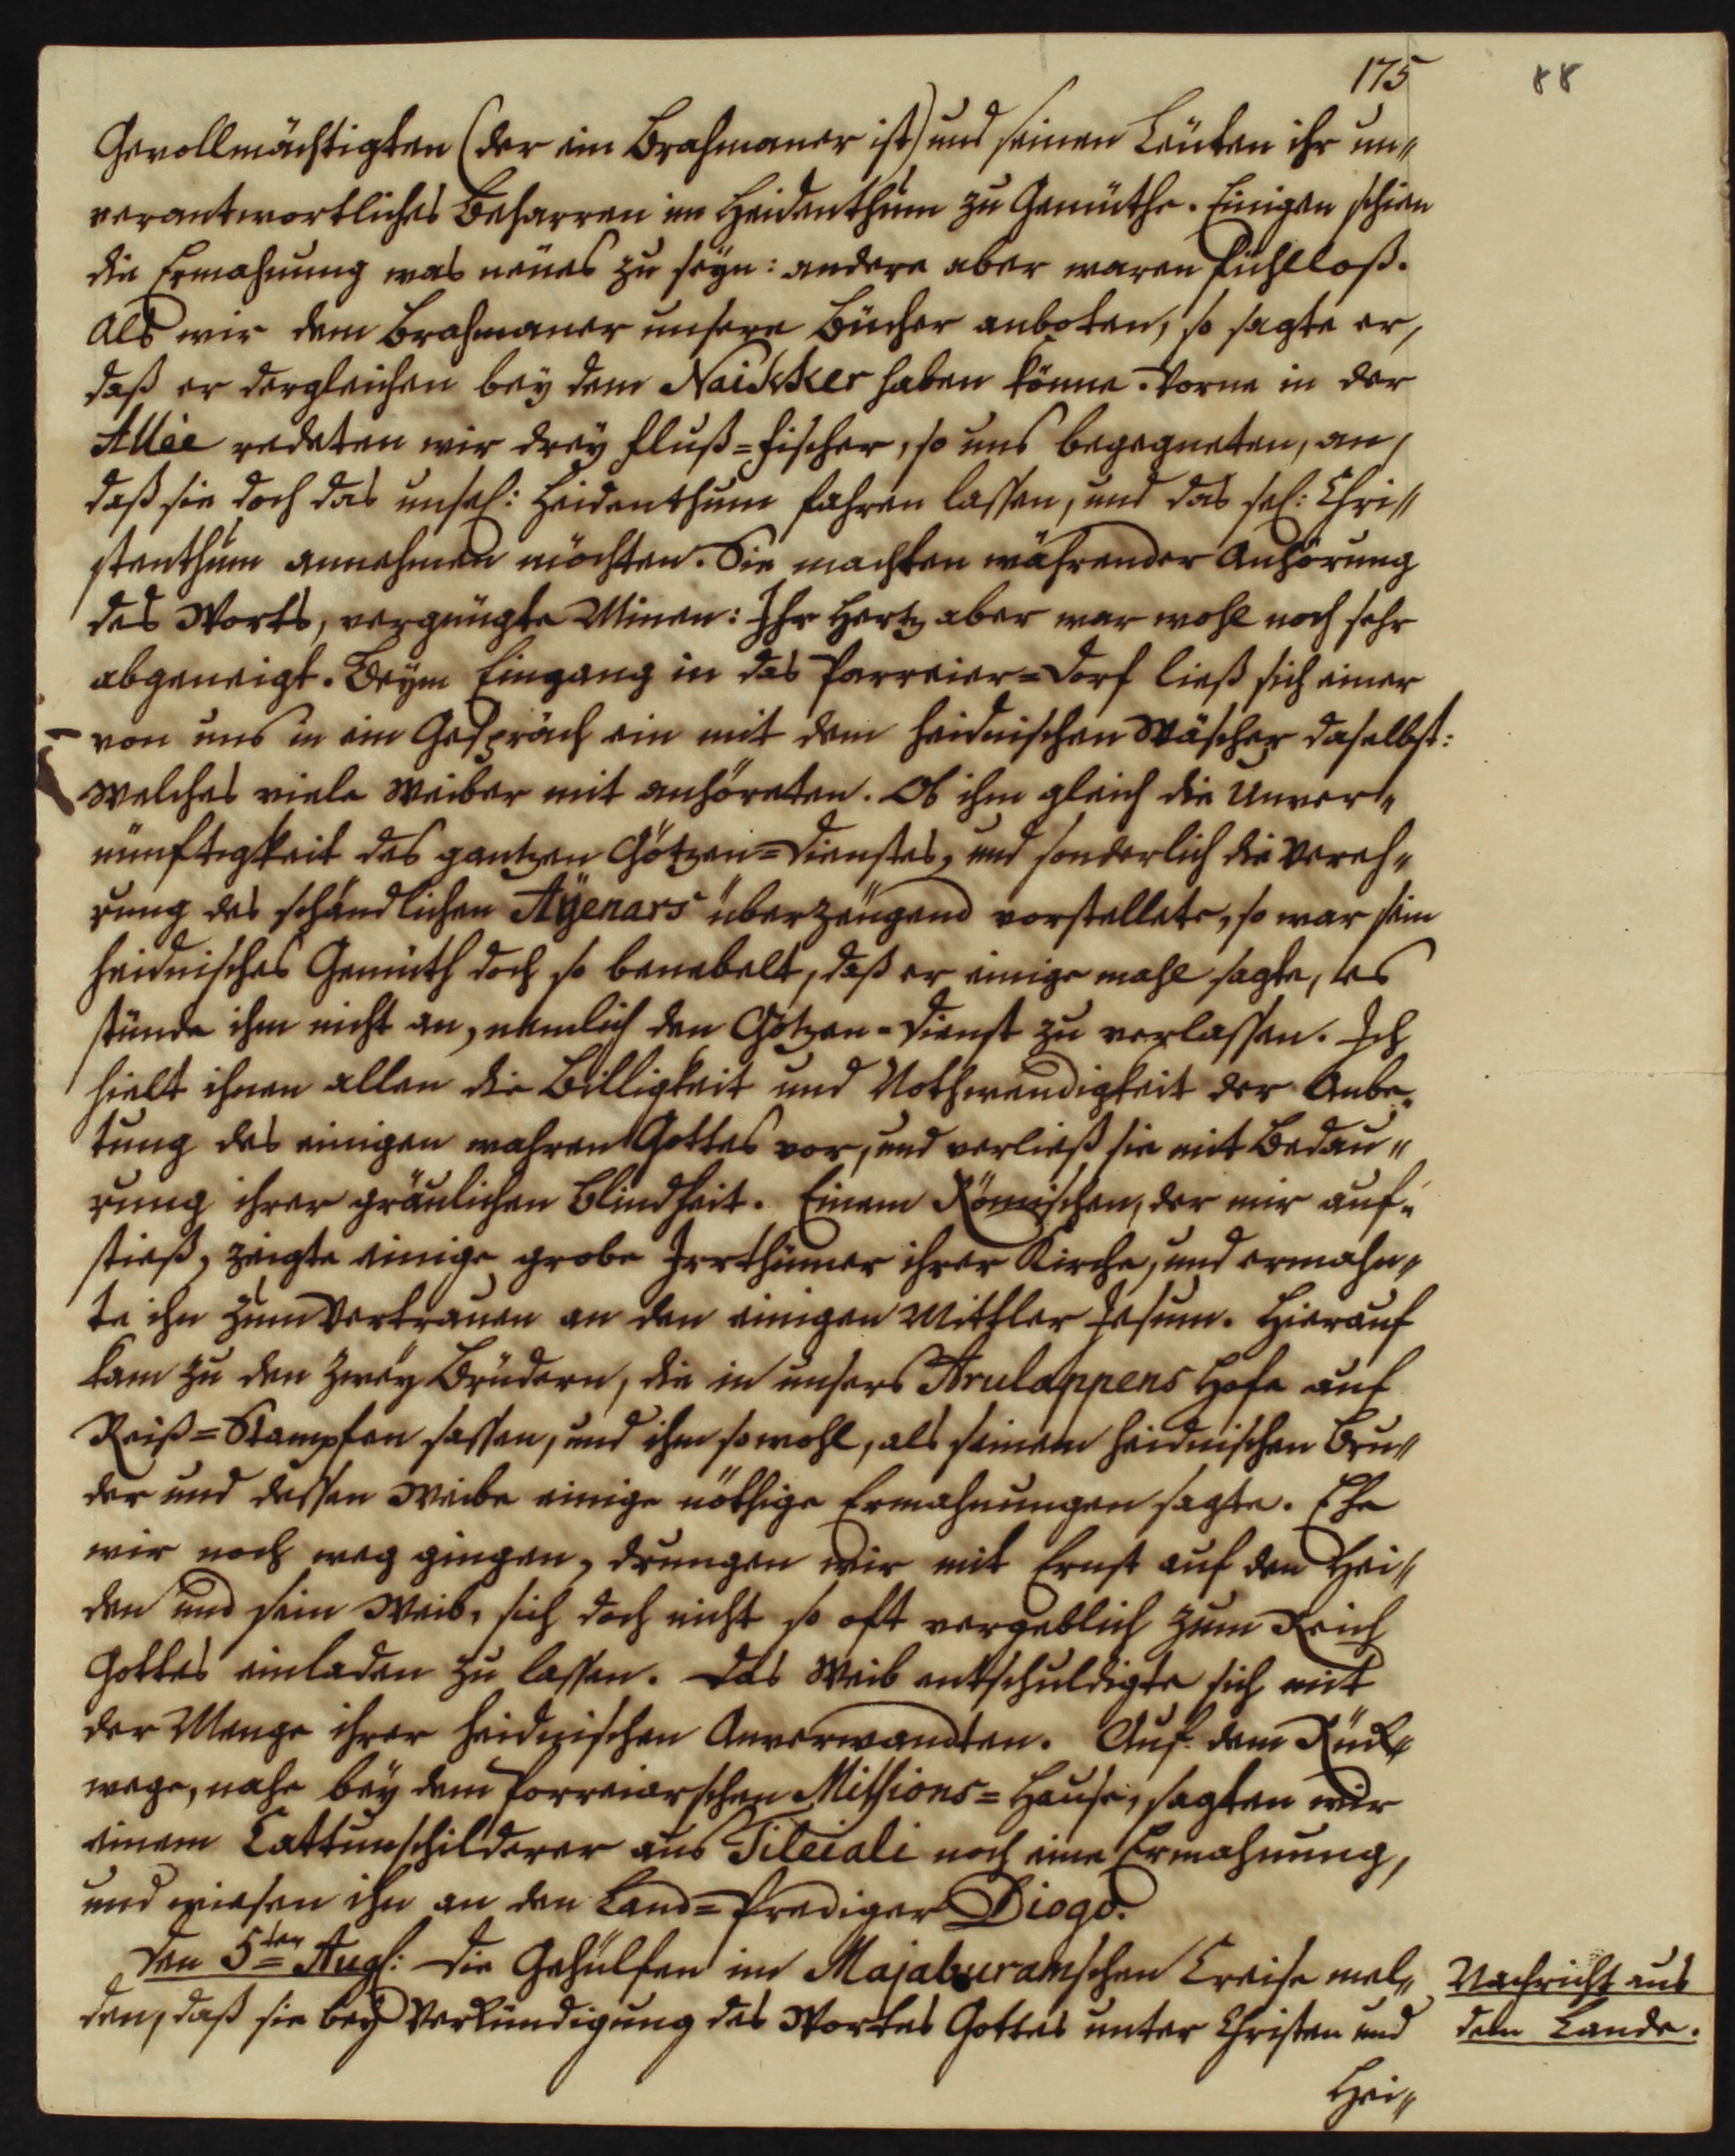 175
88
Gevollmächtigten (der ein Brahmaner ist) und seinen Leuten ihr un„
verantwortliches Beharren im Heidenthum zu Gemüthe. Einigen schien
die Ermahnung was neues zu seyn: andere aber waren fühlloß.
Als wir dem Brahmaner unsere Bücher anboten, so sagte er,
daß er dergleichen bey dem Naikker haben könne. Vorne in der
Allée redeten wir drey Fluß=Fischer, so uns begegneten, an,
daß sie doch das unsel: Heidenthum fahren lassen, und das sel: Chri„
stenthum annehmen möchten. Sie machten währender Anhörung
des Worts, vergnügte Minen: Ihr Hertz aber war wohl noch sehr
abgeneigt. Beym Eingang in das Parreier=Dorf ließ sich einer
von uns in ein Gespräch ein mit dem heidnischen Wäscher daselbst:
welches viele Weiber mit anhöreten. Ob ihm gleich die Unver„
nünftigkeit des gantzen Götzen=Dienstes, und sonderlich die Vereh„
rung des schändlichen Aÿenars überzeugend vorstellete, so war sein
heidnisches Gemüth doch so benebelt, daß er einige mahl sagte, es
stünde ihm nicht an, nemlich den Götzen=Dienst zu verlassen. Ich
hielt ihnen allen die Billigkeit und Nothwendigkeit der Anbe„
tung des einigen wahren Gottes vor, und verließ sie mit Bedau„
rung ihrer gräulichen Blindheit. Einem Römischen, der mir auf„
stieß, zeigte einige grobe Irrthümer ihrer Kirche, und ermahn„
te ihn zum Vertrauen an den einigen Mittler Jesum. Hierauf
kam zu den zwey Brüdern, die in unsers Arulappens Hofe auf
Reiß=Stampfen sassen, und ihm sowohl, als seinem heidnischen Bru„
der und dessen Weibe einige nöthige Ermahnungen sagte. Ehe
wir noch weg gingen, drungen wir mit Ernst auf den Hei„
den und sein Weib, sich doch nicht so oft vergeblich zum Reich
Gottes einladen zu lassen. Das Weib entschuldigte sich mit
der Menge ihrer heidnischen Anverwandten. Auf dem Rück„
wege, nahe bey dem Porreiarschen Missions=Hause, sagten wir
einem Cattunschilderer aus Tileiali noch eine Ermahnung,
und wiesen ihn an den Land=Prediger Diogo.
Den 5ten Aug: Die Gehülfen im Majaburamschen Creise mel„
den, daß sie bey Verkündigung des Wortes Gottes unter Christen und
Nachricht aus
dem Lande.
Hei„